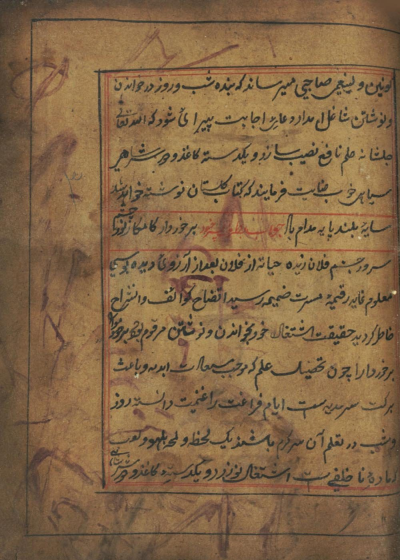 کونین و ینیعمی صاحبی میرساند که بنده شب و روز در خواندن
و نوشتن شاغل مدارد بدعای اجابت پیرای شود که الله تعالی
جلشانه علم نافع نصیب سازد و یکدسته کاغذ و
سیاهی خوب عنایت فرمایند که کتاب گلستان نوشته خواهد
سایه بلند پایه مدام باد برخوردار کامکار نور چشم
سرور چشم فلان زنده حیاته از فلان بعد از آرزوی دیده بوسی
معلوم نماید رقیمه مسرت ضمیمه رسید انضاح کوائف و انشراح
خاطر گردید حقیقت اشتغال خود بخواندن و نوشتن مرقوم بود
برخوردارا چون تحصیل علم که موجب سعادت ابدیه و باعث
برکت سرمدیه ست ایام فراغت را غنیت دانسته روز
و شب در تعلم آن سرگرم باشند یک لحظه و لمحه بلهو و لعب
که ماده نا خلفی ست اشتغال نورزد و یکدسته کاغذ و